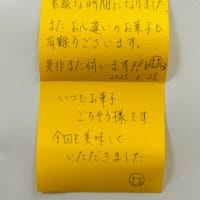 素敵な時間になりました
また お心遣いのお菓子も
有難うございます。
また伺います!!
2025.6.28
いつもお菓子
ごちそう様です
今回も美味しく
いただきました